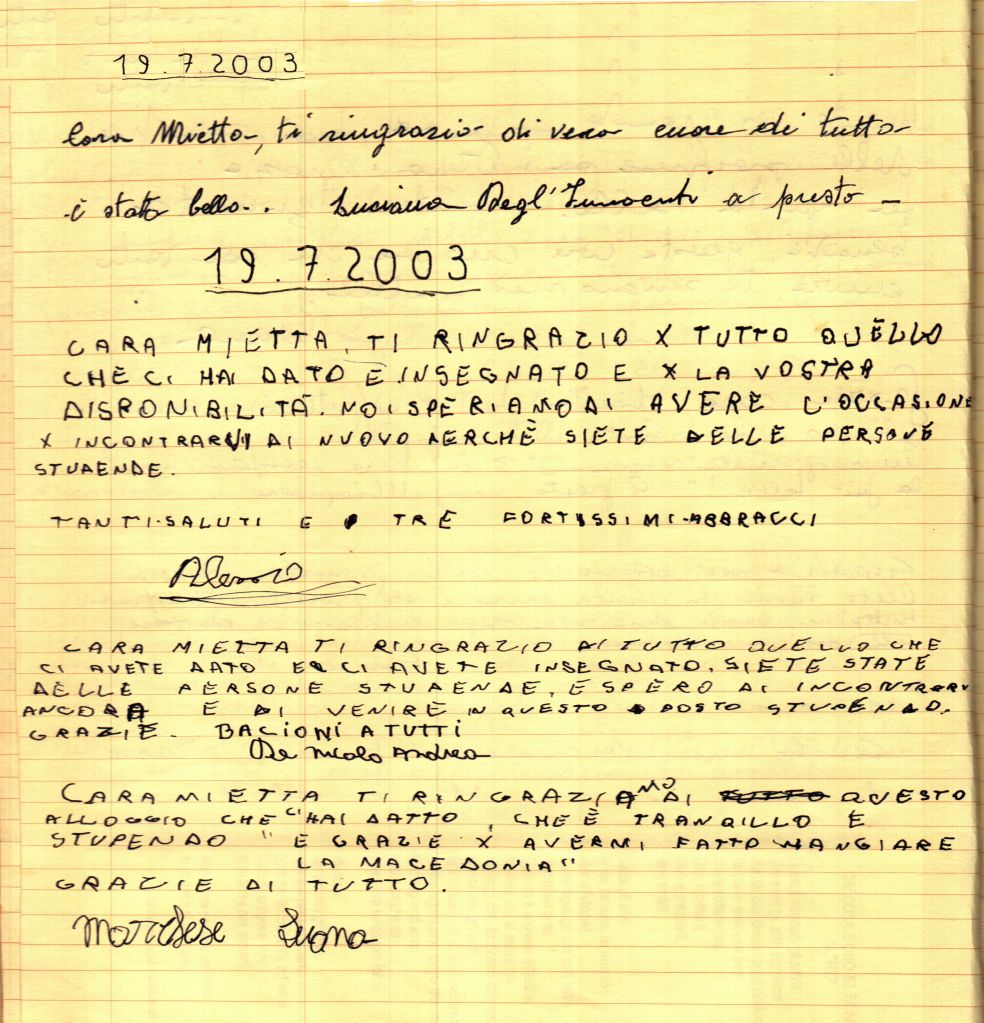 19.7.2003
Cara Mietta, ti ringrazio di vero cuore di tutto
è stato bello.. Luciana Degl'Innocenti a presto -
19.7.2003
CARA MIETTA, TI RINGRAZIO X TUTTO QUELLO
CHE CI HAI DATO E INSEGNATO E X LA VOSTRA
DISPONIBILITÀ. NOI SPERIAMO DI AVERE L'OCCASIONE
X INCONTRARVI DI NUOVO PERCHÈ SIETE DELLE PERSONE
STUPENDE.
TANTI SALUTI E TRE FORTISSIMI ABBRACCI
Alessio
CARA MIETTA TI RINGRAZIO DI TUTTO QUELLO CHE
CI AVETE DATO E CI AVETE INSEGNATO. SIETE STATE
DELLE PERSONE STUPENDE, E SPERO DI INCONTRARVI
ANCORA E DI VENIRE IN QUESTO POSTO STUPENDO.
GRAZIE. BACIONI A TUTTI
De Nicolo Andrea
CARA MIETTA TI RINGRAZIAMO DI TUTTO QUESTO
ALLOGGIO CHE CI HAI DATTO, CHE È TRANQILLO E
STUPENDO "E GRAZIE X AVERMI FATTO MANGIARE
LA MACEDONIA"
GRAZIE DI TUTTO.
Marchese